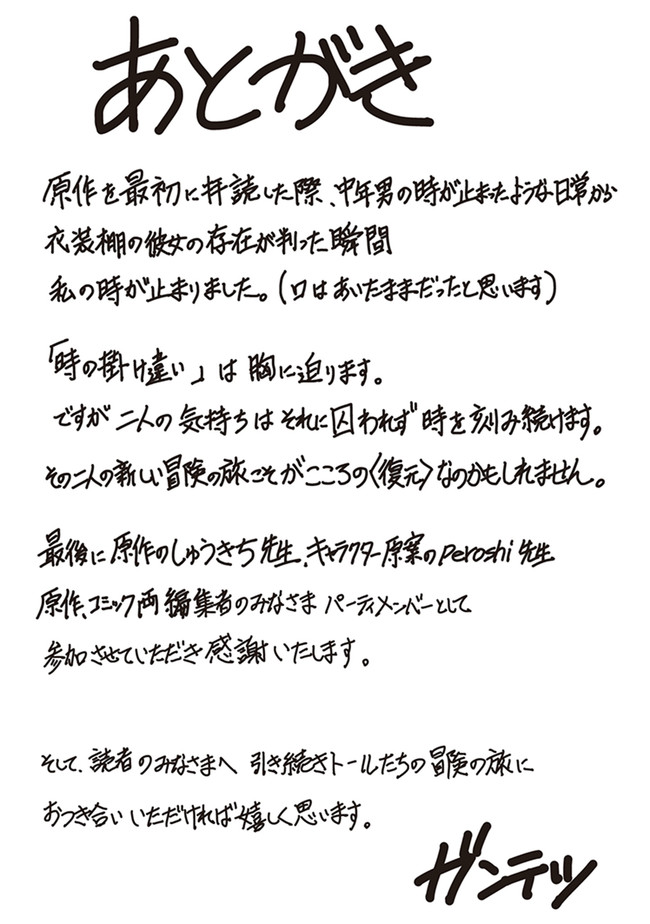 あとがき
原作を最初に拝読した際、中年男の時が止まったような日常から
衣装棚の彼女の存在が判った瞬間
私の時が止まりました。(口はあいたままだったと思います)
「時の掛け違い」は胸に迫ります。
ですが二人の気持ちはそれに囚われず時を刻み続けます。
その二人の新しい冒険の旅こそがこころの〈復元〉なのかもしれません。
最後に原作のしゅうきち先生、キャラクター原案のperoshi先生
原作、コミック両編集者のみなさまパーティメンバーとして
参加させていただき感謝いたします。
そして、読者のみなさまへ 引き続きトールたちの冒険の旅に
おつき合いいただければ嬉しく思います。
ガンテツ